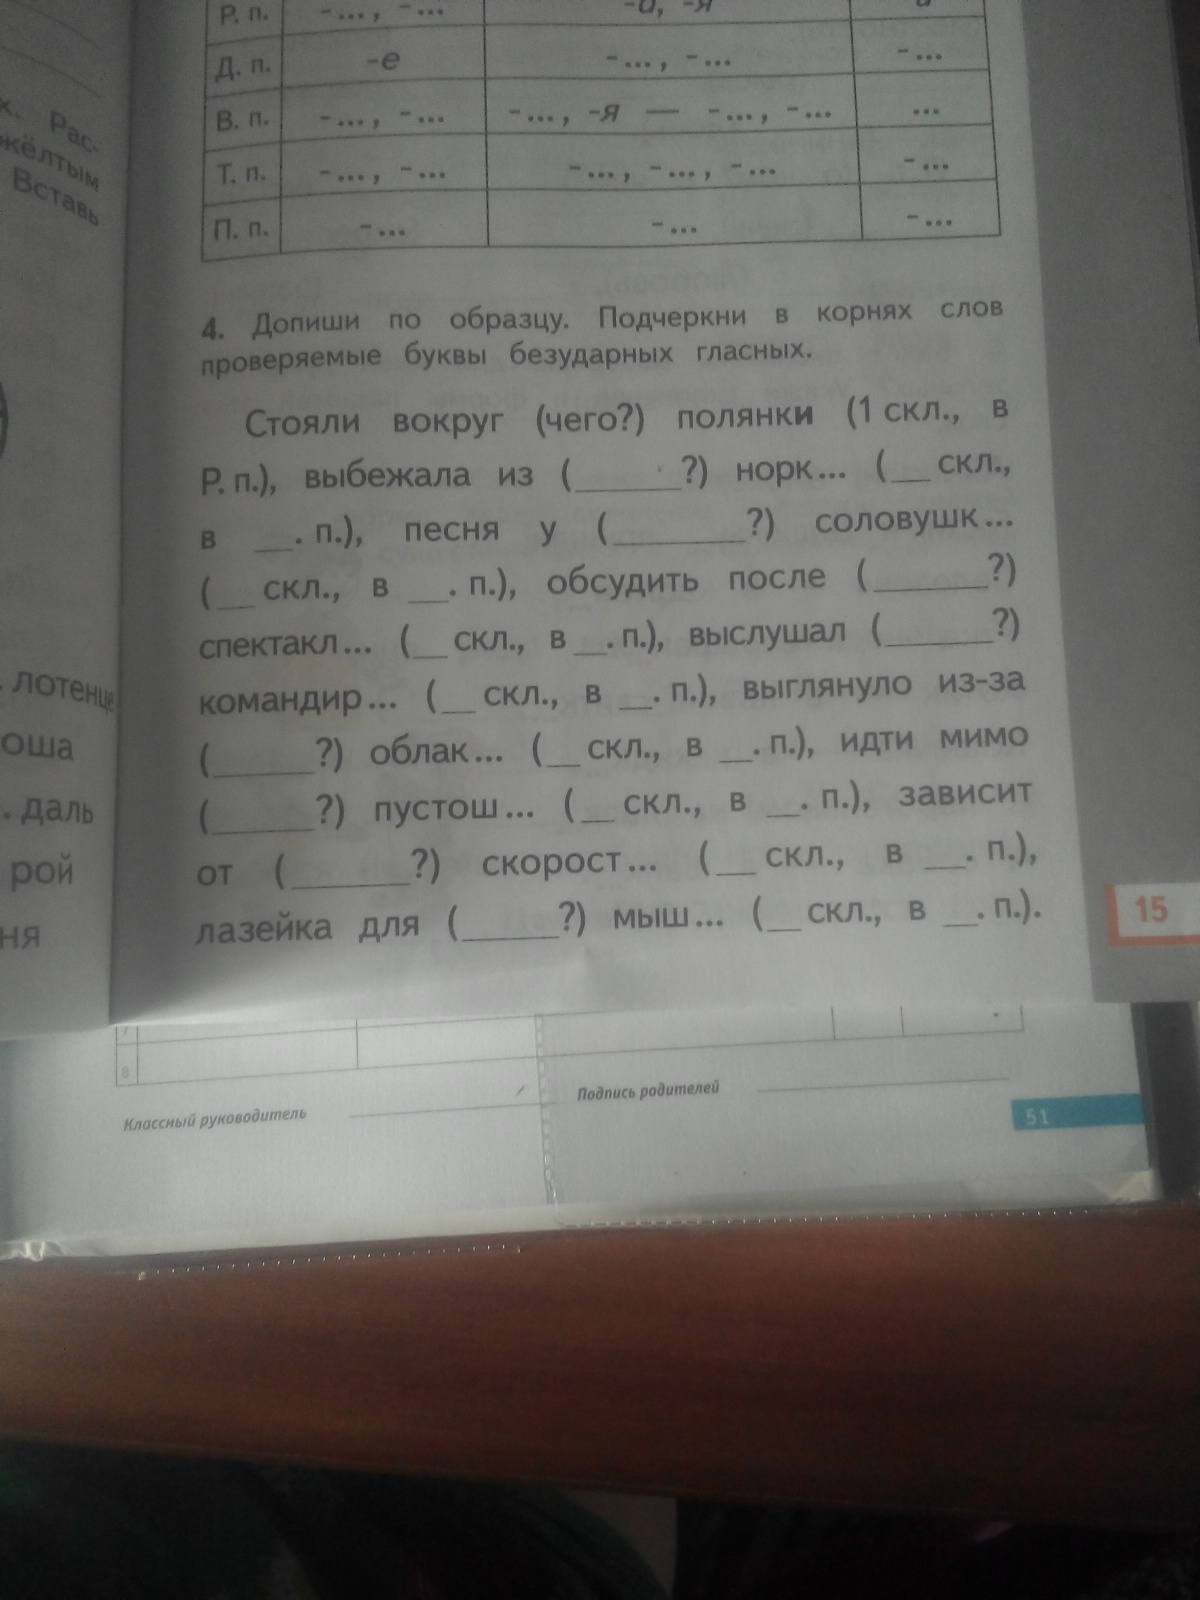 Р. п. -..., -... -а, -я -и
Д. п. -е -..., -... -...
В. п. -..., -... -..., -я — -..., -... ...
Т. п. -..., -... -..., -..., -... -...
П. п. -... -... -...
х. Рас-
жёлтым
Вставь
4. Допиши по образцу. Подчеркни в корнях слов
проверяемые буквы безударных гласных.
Стояли вокруг (чего?) полянки (1 скл., в
Р. п.), выбежала из (______?) норк... (__ скл.,
в __. п.), песня у (_______?) соловушк...
(__ скл., в __. п.), обсудить после (______?)
спектакл... (__ скл., в __. п.), выслушал (______?)
командир... (__ скл., в __. п.), выглянуло из-за
(______?) облак... (__ скл., в __. п.), идти мимо
(______?) пустош... (__ скл., в __. п.), зависит
от (______?) скорост... (__ скл., в __. п.),
лазейка для (_____?) мыш... (__ скл., в __. п.).
. лотенце
оша
. даль
рой
ня
15
7
8
Классный руководитель
Подпись родителей
51